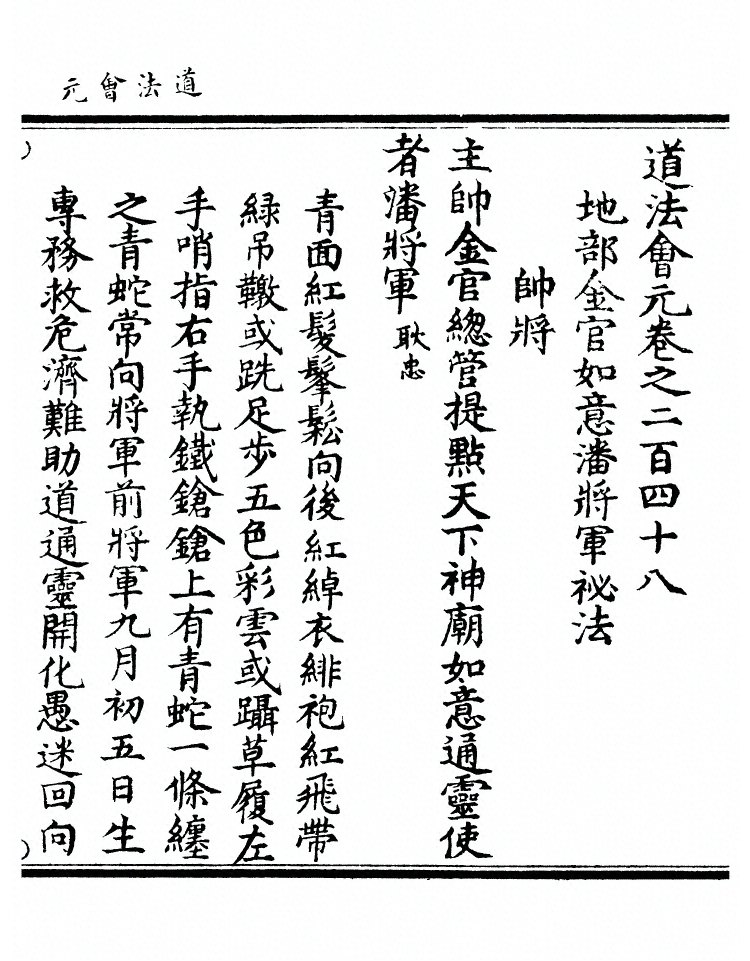 道法會元
道法會元卷之二百四十八
地部金官如意潘將軍祕法
帥將
主帥金官總管提點天下神廟如意通靈使
者潘將軍耿忠
青面紅髮鬔鬆向後紅綽衣緋袍紅飛帶
綠吊𩍐或跣足步五色彩雲或躡草履左
手哨指右手執鐵鎗鎗上有青蛇一條纏
之青蛇常向將軍前將軍九月初五日生
專務救危濟難助道通靈開化愚迷回向